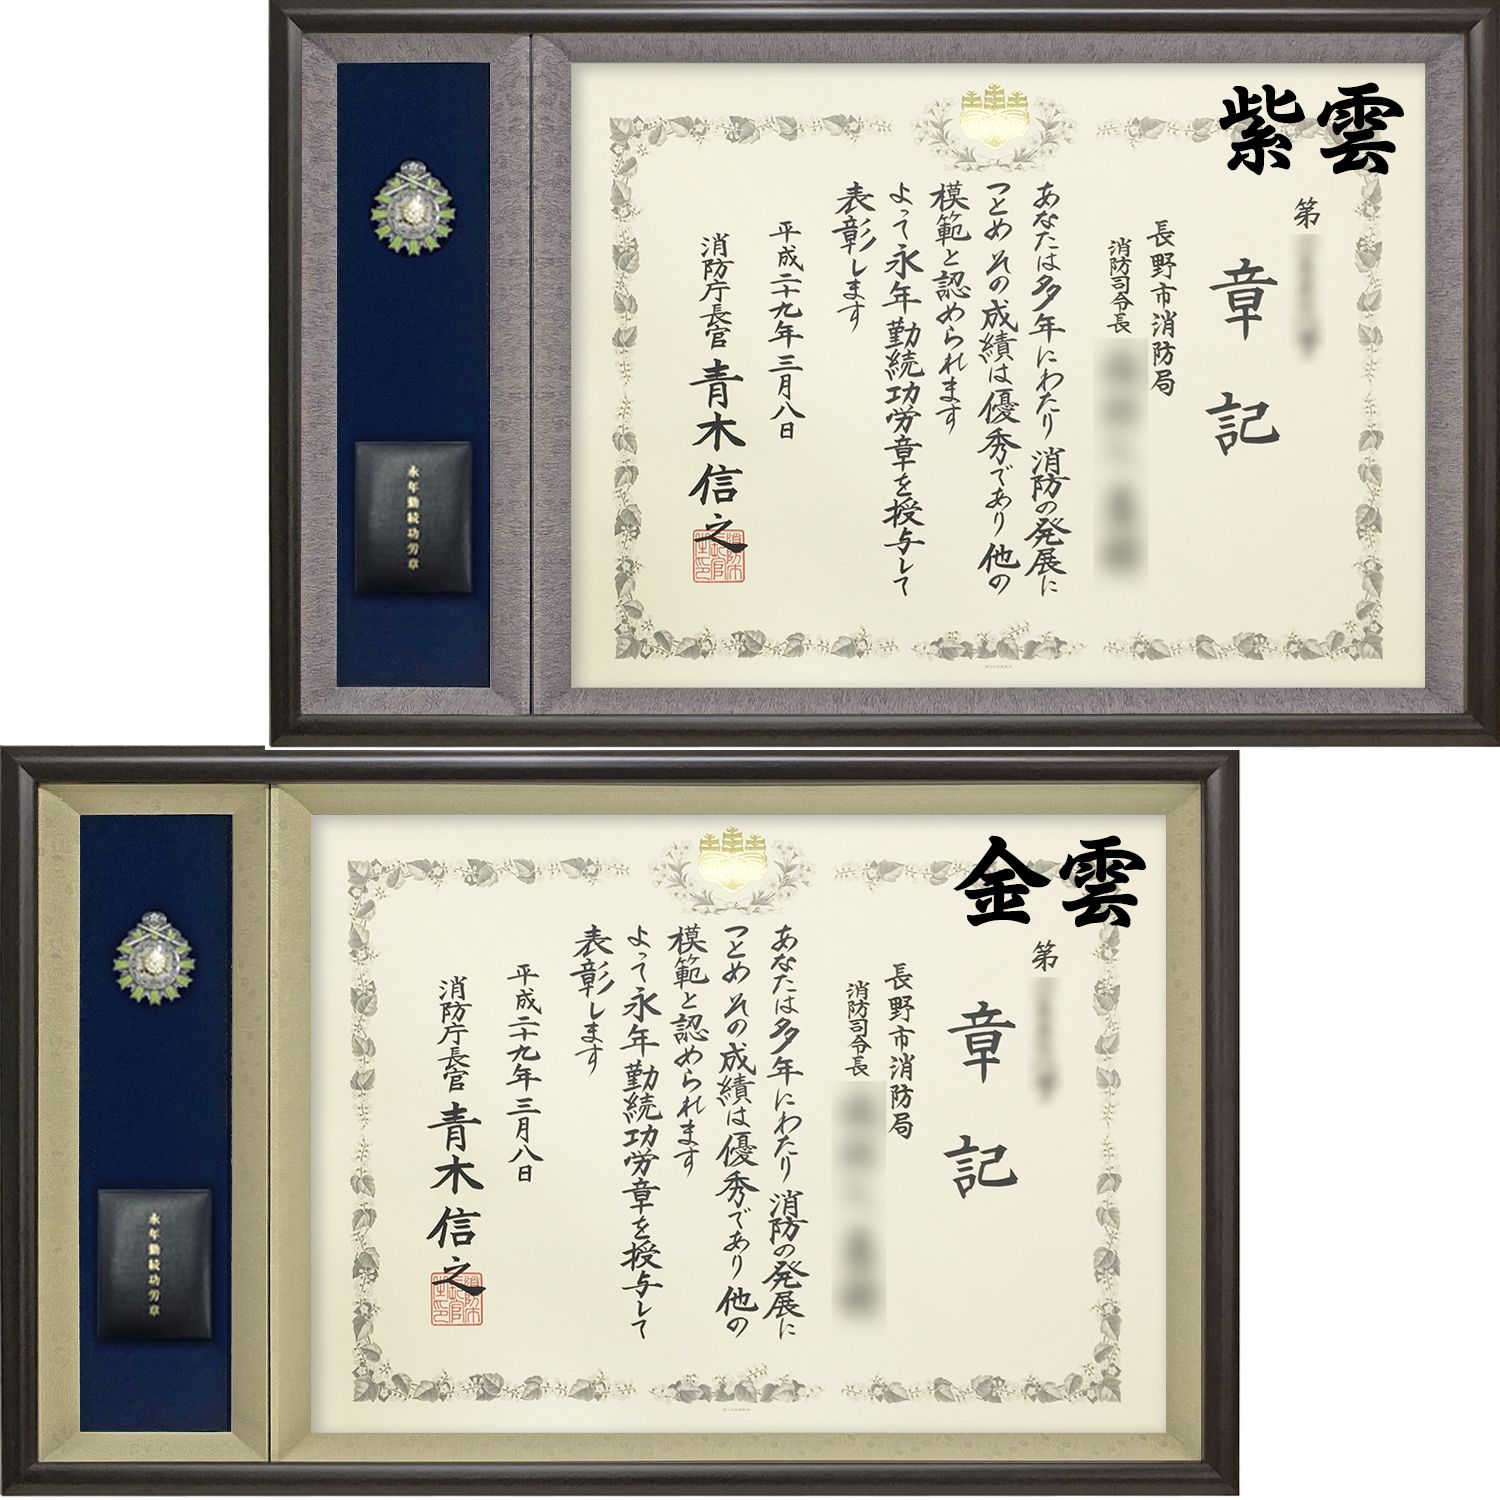 紫雲
第
章記
長野市消防局
消防司令長
あなたは多年にわたり 消防の発展に
つとめ その成績は優秀であり 他の
模範と認められます
よって永年勤続功労章を授与して
表彰します
平成二十九年三月八日
消防庁長官 青木信之
消防庁長官之印
永年勤続功労章
金雲
第
章記
長野市消防局
消防司令長
あなたは多年にわたり 消防の発展に
つとめ その成績は優秀であり 他の
模範と認められます
よって永年勤続功労章を授与して
表彰します
平成二十九年三月八日
消防庁長官 青木信之
消防庁長官之印
永年勤続功労章